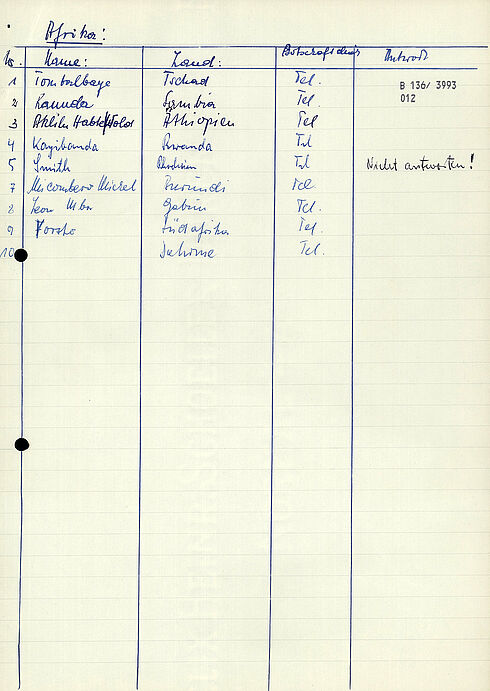 Afrika:
No. Name: Land: Botschaft durch Antwort
1 Tombalbaye Tschad Tel.
B 136/ 3993
2 Kaunda Sambia Tel
012
3 Aklilu Habte Wold Äthiopien Tel
4 Kayibanda Rwanda Tel
5 Smith Rhodesien Tel Nicht antworten!
7 Micombero Michel Burundi Tel
8 Leon Mba Gabun Tel.
9 Vorster Südafrika Tel.
10 Dahome Tel.